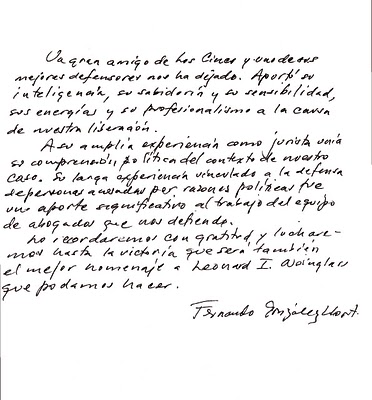 Un gran amigo de Los Cinco y uno de sus
mejores defensores nos ha dejado. Aportó su
inteligencia, su sabiduría y su sensibilidad,
sus energías y su profesionalismo a la causa
de nuestra liberación.
A su amplia experiencia como jurista unía
su comprensión política del contexto de nuestro
caso. Su larga experiencia vinculado a la defensa
de personas acusadas por razones políticas fue
un aporte significativo al trabajo del equipo
de abogados que nos defiende.
Lo recordaremos con gratitud, y luchare-
mos hasta la victoria que será también
el mejor homenaje a Leonard I. Weinglass
que podamos hacer.
Fernando González Llort.